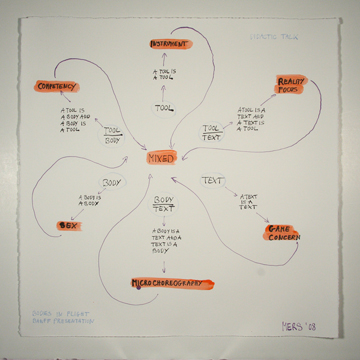 INSTRUMENT
A TOOL IS
A TOOL
TOOL
COMPETENCY
A TOOL IS
A BODY AND
A BODY IS
A TOOL
TOOL
BODY
REALITY
FOCUS
A TOOL IS A
TEXT AND
A TEXT IS
A TOOL
TOOL
TEXT
MIXED
BODY
A BODY IS
A BODY
SEX
TEXT
A TEXT
IS A
TEXT
GAME
CONCERN
BODY
TEXT
A BODY IS A
TEXT AND A
TEXT IS A
BODY
MICROCHOREOGRAPHY
DOORS IN FLIGHT
PRESENTATION
MERS '08